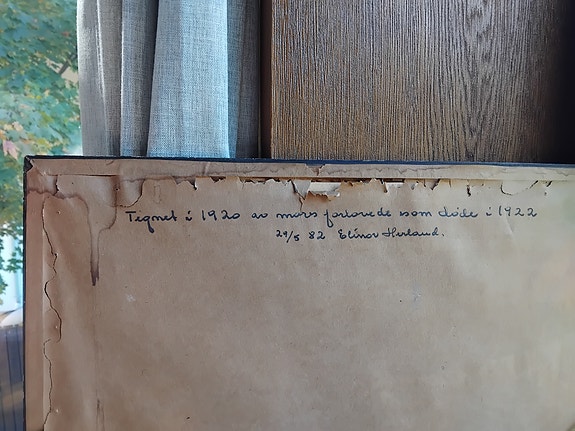 Tegnet i 1920 av mors forlovede som døde i 1922
29/5 82 Elinor Herland.